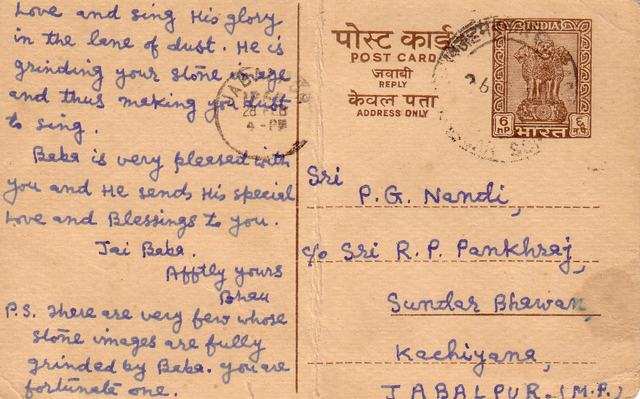 Love and sing His glory
in the lane of dust. He is
grinding your stone image
and thus making you dust
to sing.
Baba is very pleased with
you and He sends His special
Love and Blessings to you.
Jai Baba.
Afftly yours
Bhau
P.S. There are very few whose
stone images are fully
grinded by Baba. you are
fortunate one.
28 FEB
4 - PM
पोस्ट कार्ड
POST CARD
जवाबी
REPLY
केवल पता
ADDRESS ONLY
INDIA
6 nP
भारत
Sri
P. G. Nandi,
c/o Sri R. P. Pankhraj,
Sundar Bhawan,
Kachiyana,
JABALPUR. (M.P.)